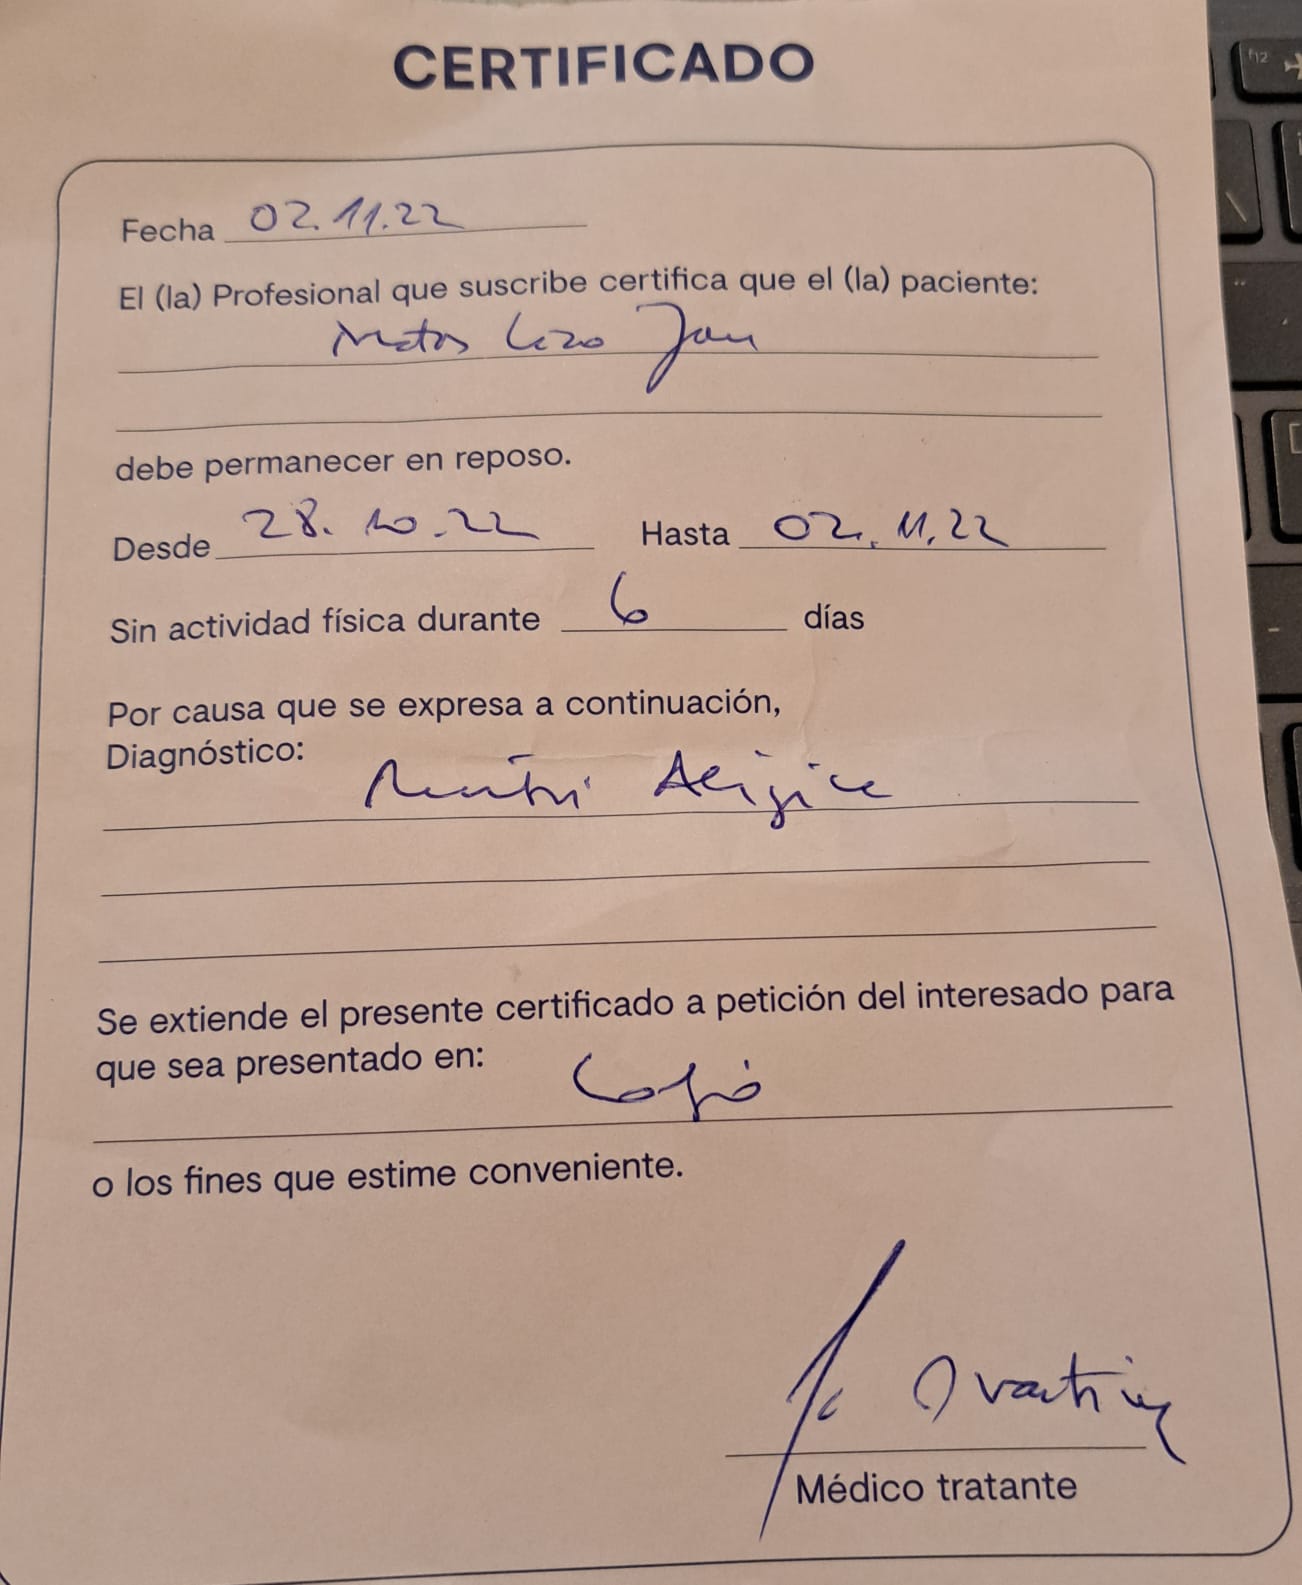 CERTIFICADO
Fecha 02.11.22
El (la) Profesional que suscribe certifica que el (la) paciente:
Matos Jan
debe permanecer en reposo.
Desde 28.10.22 Hasta 02.11.22
Sin actividad física durante 6 días
Por causa que se expresa a continuación,
Diagnóstico:
Se extiende el presente certificado a petición del interesado para
que sea presentado en:
o los fines que estime conveniente.
Médico tratante
f12